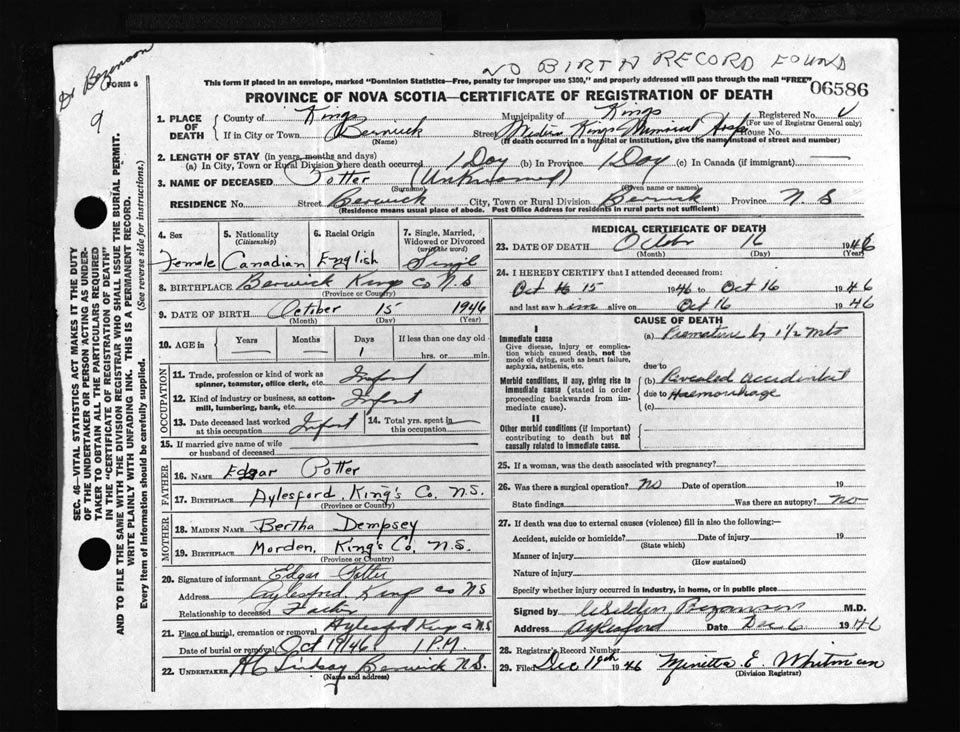 NO BIRTH RECORD FOUND
Dr Bezanson
FORM 6
9
This form if placed in an envelope, marked "Dominion Statistics—Free, penalty for improper use $300," and properly addressed will pass through the mail "FREE"
06586
PROVINCE OF NOVA SCOTIA—CERTIFICATE OF REGISTRATION OF DEATH
SEC. 46—VITAL STATISTICS ACT MAKES IT THE DUTY
OF THE UNDERTAKER OR PERSON ACTING AS UNDER-
TAKER TO OBTAIN ALL THE PARTICULARS REQUIRED
IN THE "CERTIFICATE OF REGISTRATION OF DEATH"
AND TO FILE THE SAME WITH THE DIVISION REGISTRAR WHO SHALL ISSUE THE BURIAL PERMIT.
WRITE PLAINLY WITH UNFADING INK. THIS IS A PERMANENT RECORD.
Every item of information should be carefully supplied. (See reverse side for instructions.)
1. PLACE OF DEATH County of Kings Municipality of Kings Registered No.
(For use of Registrar General only)
If in City or Town Berwick Street Western Kings Memorial Hosp House No.
(Name) (If death occurred in a hospital or institution, give the name instead of street and number)
2. LENGTH OF STAY (in years, months and days)
(a) In City, Town or Rural Division where death occurred 1 Day (b) in Province 1 Day (c) In Canada (if immigrant) —
3. NAME OF DECEASED Potter (Unknamed)
(Surname) (Given name or names)
RESIDENCE No. Street Berwick City, Town or Rural Division Berwick Province N.S
(Residence means usual place of abode. Post Office Address for residents in rural parts not sufficient)
4. Sex 5. Nationality (Citizenship) 6. Racial Origin 7. Single, Married, Widowed or Divorced (write the word)
Female Canadian English Single
8. BIRTHPLACE Berwick Kings Co N.S
(Province or Country)
9. DATE OF BIRTH October 15 1946
(Month) (Day) (Year)
10. AGE in Years Months Days If less than one day old
— — 1 hrs. or min.
OCCUPATION
11. Trade, profession or kind of work as spinner, teamster, office clerk, etc. Infant
12. Kind of industry or business, as cotton-mill, lumbering, bank, etc. Infant
13. Date deceased last worked at this occupation Infant 14. Total yrs. spent in this occupation —
15. If married give name of wife or husband of deceased
FATHER
16. NAME Edgar Potter
17. BIRTHPLACE Aylesford, King's Co. N.S.
(Province or Country)
MOTHER
18. MAIDEN NAME Bertha Dempsey
19. BIRTHPLACE Morden, King's Co, N.S.
(Province or Country)
20. Signature of informant Edgar Potter
Address Aylesford Kings Co NS
Relationship to deceased Father
21. Place of burial, cremation or removal Aylesford Kings Co N.S
Date of burial or removal Oct 19/46 1 P.M.
22. UNDERTAKER Lindsay Berwick N.S.
(Name and address)
MEDICAL CERTIFICATE OF DEATH
23. DATE OF DEATH October 16 1946
(Month) (Day) (Year)
24. I HEREBY CERTIFY that I attended deceased from:
Oct 15 1946 to Oct 16 1946
and last saw him alive on Oct 16 1946
CAUSE OF DEATH
I
Immediate cause
Give disease, injury or complication which caused death, not the mode of dying, such as heart failure, asphyxia, asthenia, etc.
(a) Premature by 1½ mts
due to
Morbid conditions, if any, giving rise to immediate cause (stated in order proceeding backwards from immediate cause).
(b) Revealed accidental
due to Haemorrhage
(c)
II
Other morbid conditions (if important) contributing to death but not causally related to immediate cause.
25. If a woman, was the death associated with pregnancy?
26. Was there a surgical operation? No Date of operation 19
State findings Was there an autopsy? No
27. If death was due to external causes (violence) fill in also the following:—
Accident, suicide or homicide? Date of injury 19
(State which)
Manner of injury
(How sustained)
Nature of injury
Specify whether injury occurred in industry, in home, or in public place
Signed by Weldin Bezanson M.D.
Address Aylesford Date Dec 6 1946
28. Registrar's Record Number
29. Filed Dec 19th 1946 Minetta E. Whitman
(Division Registrar)